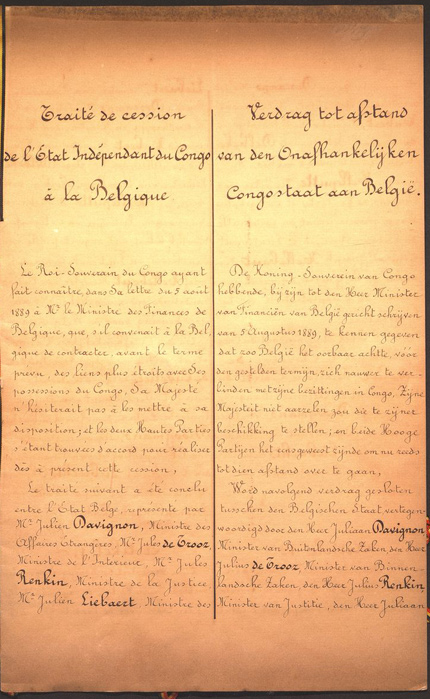 Traité de cession
de l'État Indépendant du Congo
à la Belgique
Le Roi-Souverain du Congo ayant
fait connaître, dans Sa lettre du 5 août
1889 à Mr le Ministre des Finances de
Belgique, que, s'il convenait à la Bel
gique de contracter, avant le terme
prévu, des liens plus étroits avec Ses
possessions du Congo, Sa Majesté
n'hésiterait pas à les mettre à sa
disposition; et les deux Hautes Parties
s'étant trouvées d'accord pour réaliser
dès à présent cette cession,
Le traité suivant a été conclu
entre l'État Belge, représenté par
Mr Julien Davignon, Ministre des
Affaires Étrangères, Mr Jules de Trooz,
Ministre de l'Intérieur, Mr Jules
Renkin, Ministre de la Justice
Mr Julien Liebaert Ministre des
Verdrag tot afstand
van den Onafhankelijken
Congostaat aan België.
De Koning-Souverein van Congo
hebbende, bij zijn tot den Heer Minister
van Financiën van België gericht schrijven
van 5 Augustus 1889, te kennen gegeven
dat zoo België het oorbaar achtte, vóór
den gestelden termijn, zich nauwer te ver-
binden met zijne bezittingen in Congo, Zijne
Majesteit niet aarzelen zou die te zijner
beschikking te stellen; en beide Hooge
Partijen het eens geweest zijnde om nu reeds
tot dien afstand over te gaan,
Word navolgend verdrag gesloten
tusschen den Belgischen Staat vertegen-
woordigd door den Heer Juliaan Davignon
Minister van Buitenlandsche Zaken, den Heer
Julius de Trooz, Minister van Binnen-
landsche Zaken, den Heer Julius Renkin,
Minister van Justitie, den Heer Juliaan